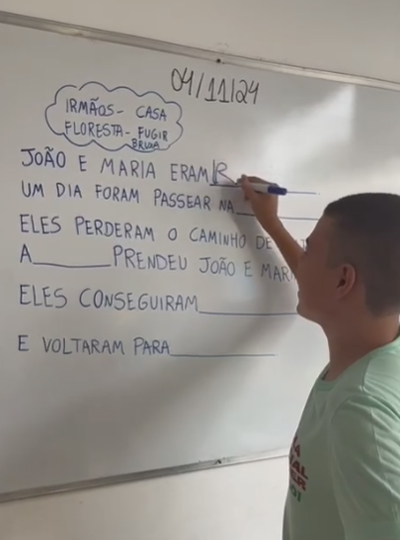 04/11/24
IRMÃOS- CASA
FLORESTA- FUGIR
BRUXA
JOÃO E MARIA ERAM IR
UM DIA FORAM PASSEAR NA______
ELES PERDERAM O CAMINHO DE
A______PRENDEU JOÃO E MARI
ELES CONSEGUIRAM______
E VOLTARAM PARA______